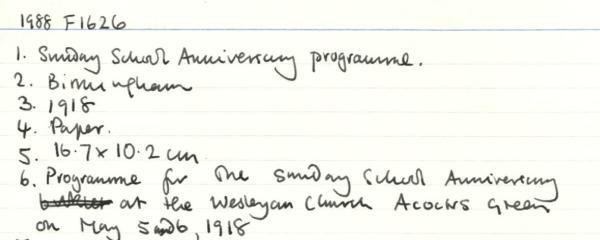 1988 F1626
1. Sunday School Anniversary programme.
2. Birmingham
3. 1918
4. Paper.
5. 16.7 x 10.2 cm
6. Programme for the Sunday School Anniversary
at the Wesleyan Church Acocks Green
on May 5 and 6, 1918